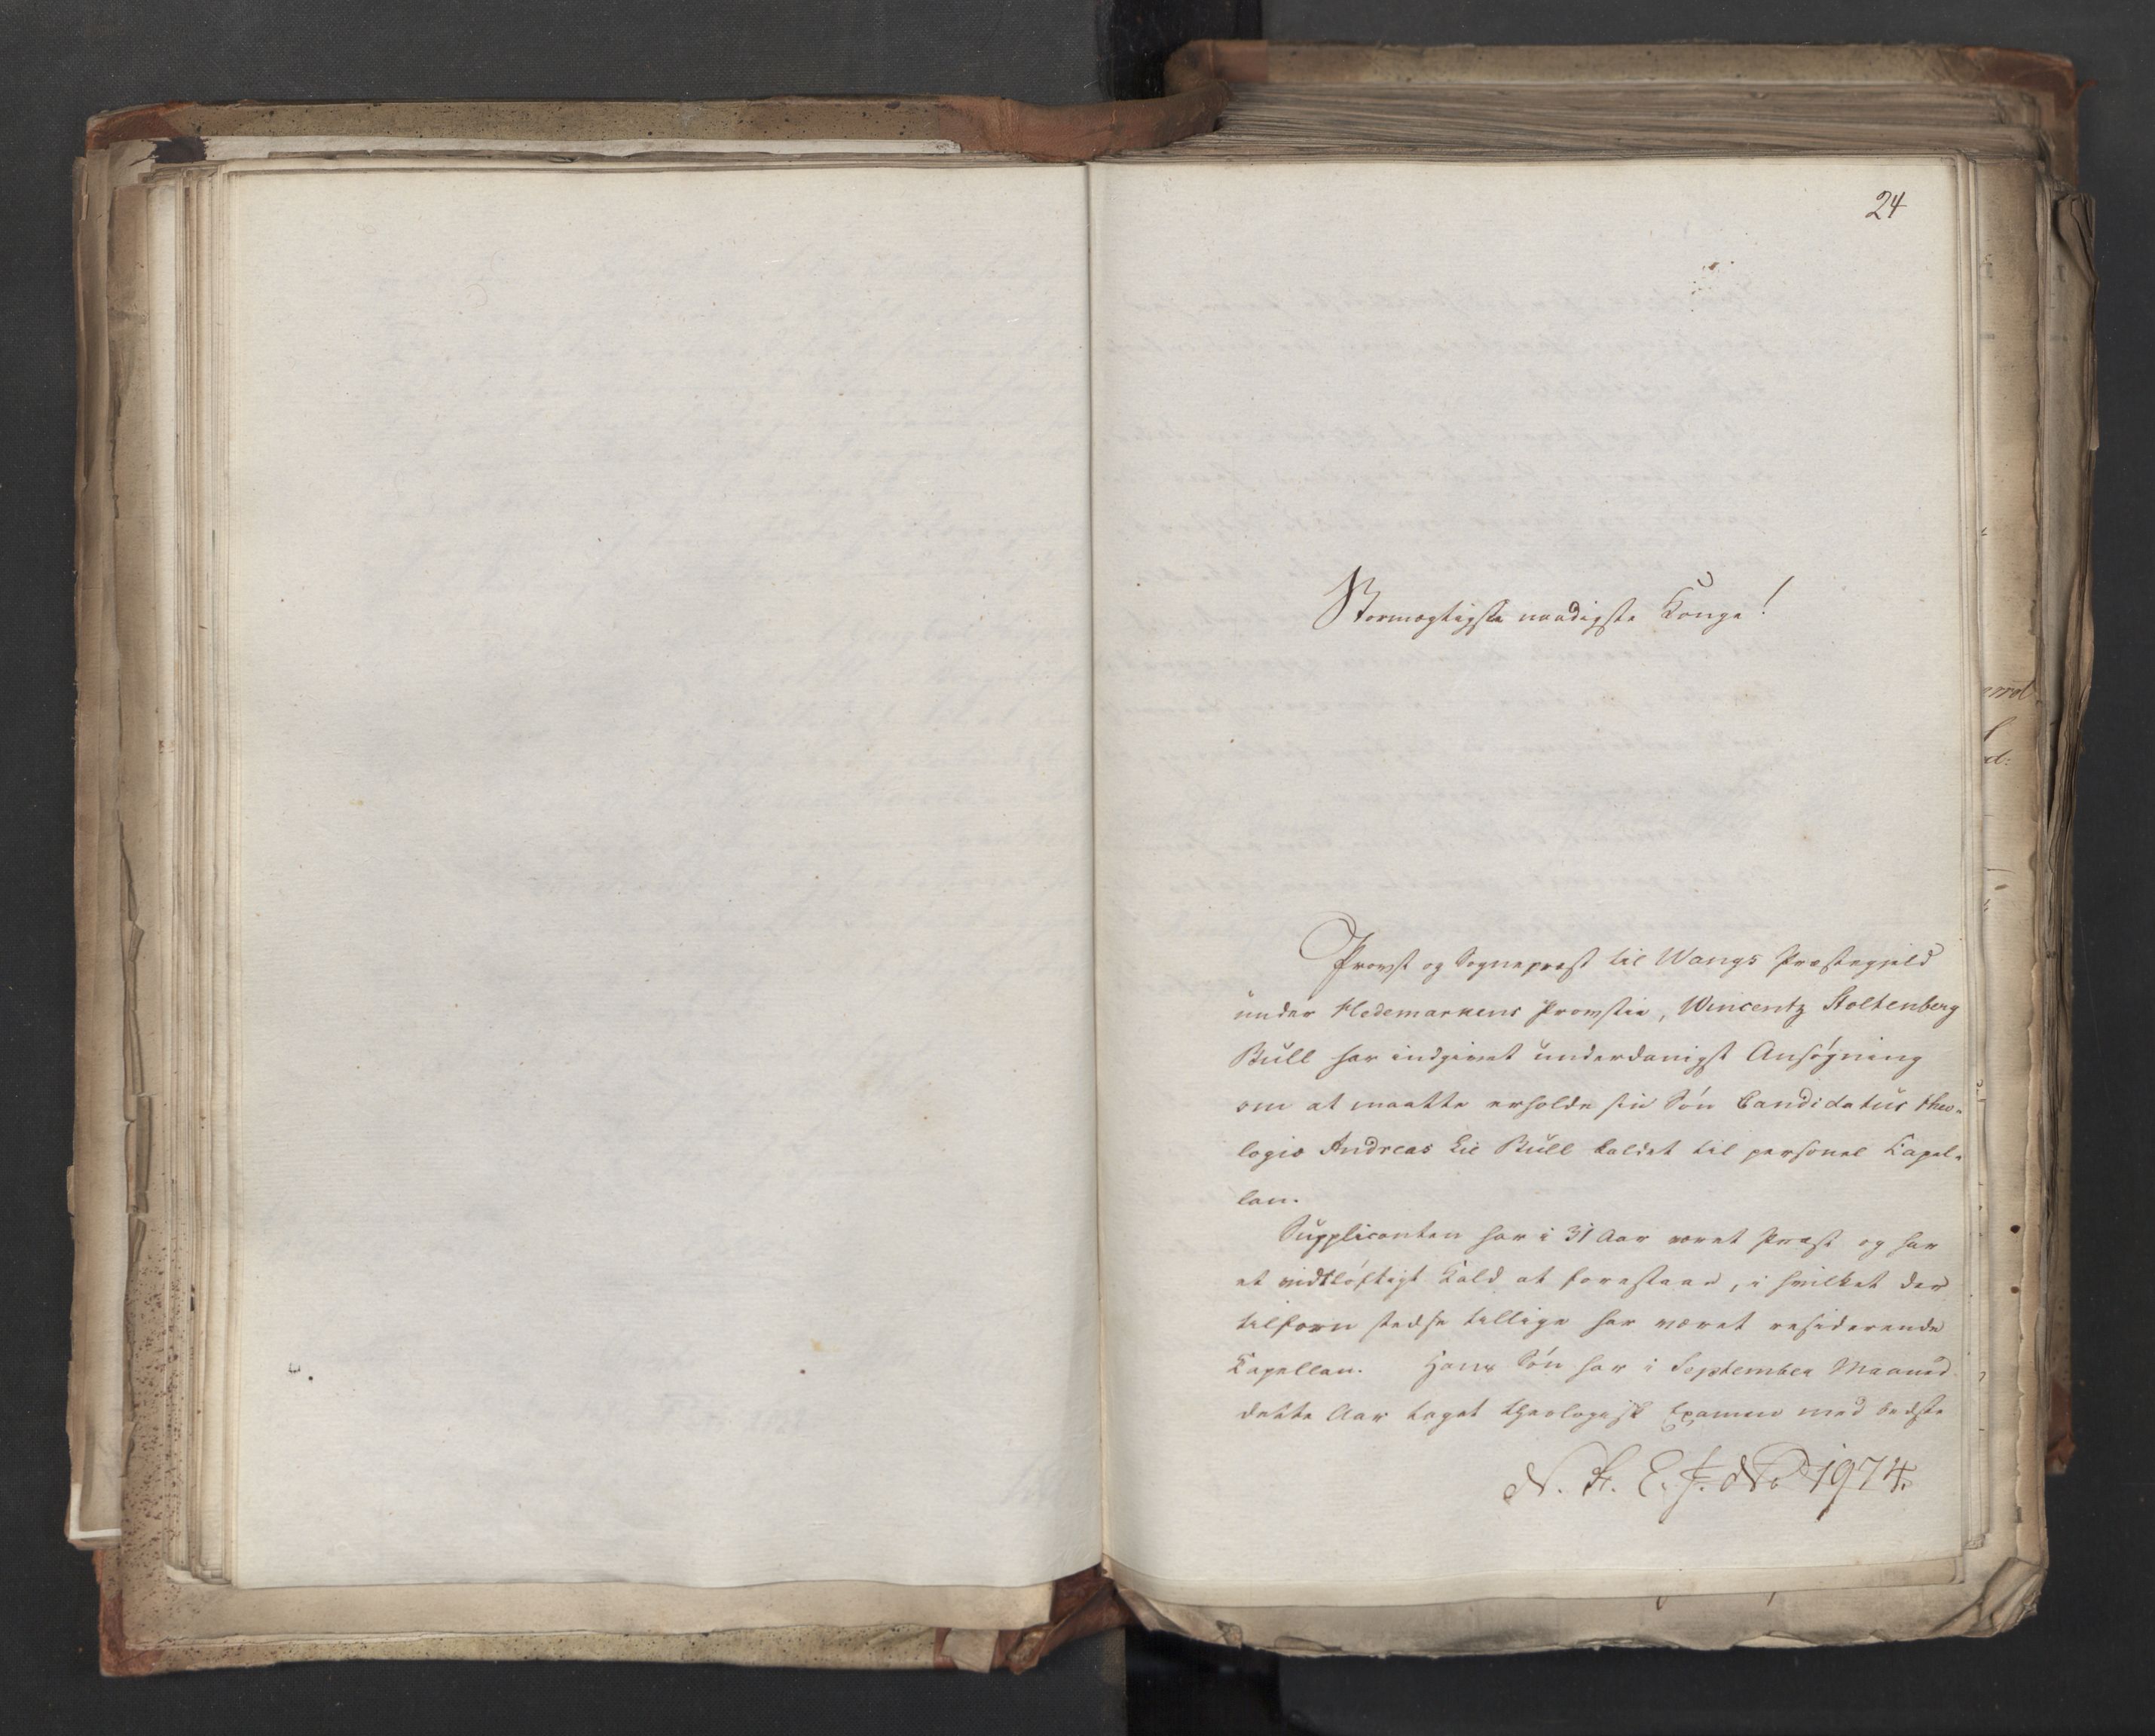 24
Stormægtigste naadigste Konge!
Provst og Sognepræst til Wangs Præstegjeld
under Hedemarkens Provstie, Wincentz Stoltenberg
Bull har indgivet underdanigst Ansøgning
om at maatte erholde sin Søn Candidatus theo-
logiæ Andreas Lie Bull kaldet til personel Kapel-
lan.
Supplicanten har i 31 Aar været Præst og har
et vidtløftigt Kald at forestaae, i hvilket der
tilforn stedse tillige har været residerende
Kapellan. Hans Søn har i September Maaned
dette Aar taget theologisk Examen med bedste
N. St. E. J. No 1974.